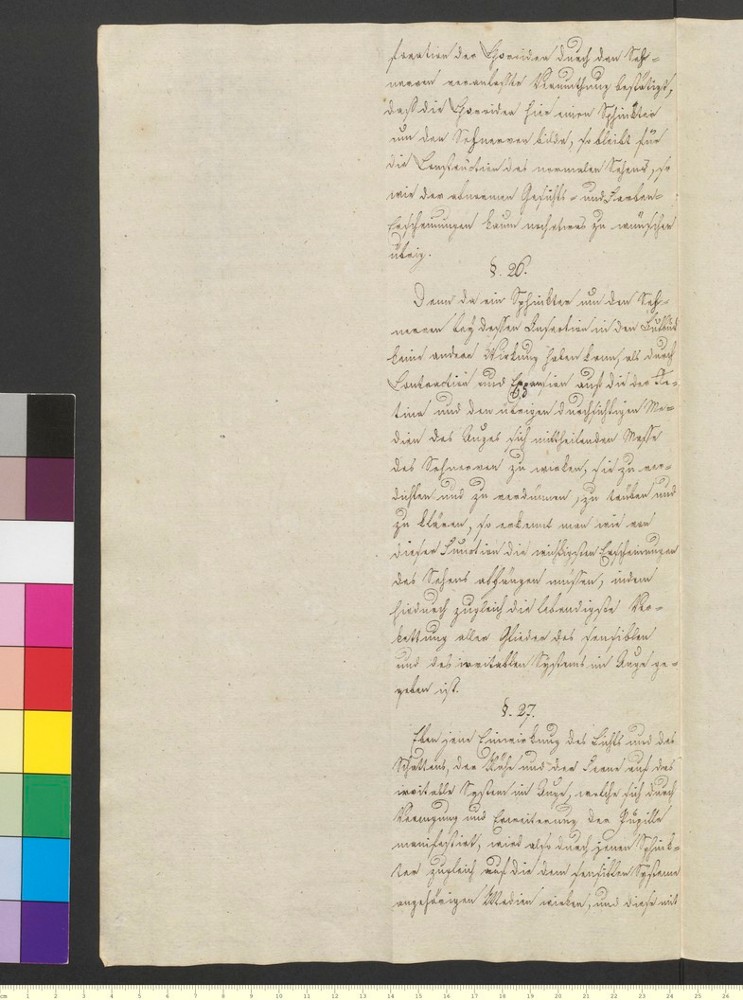 foration der Choroidea durch den Seh-
nerven veranlasste Vermuthung bestätigt,
dass die Choroidea hier einen Sphinkter
um den Sehnerven bilde, so bleibt für
die Construction des normalen Sehens, so
wie der abnormen Gesichts- und Farben-
Erscheinungen kaum noch etwas zu wünschen
übrig.
§. 26.
Denn da ein Sphinkter um den Seh-
nerven bey dessen Insertion in den Bulbus
keine andere Wirkung haben kann, als durch
Contraction und Expansion auf die der Re-
tina und den übrigen durchsichtigen Me-
dien des Auges sich mittheilenden Masse
des Sehnerven zu wirken, sie zu ver-
dichten und zu verdünnen, zu trüben und
zu klären, so erkennt man wie von
dieser Function die wichtigsten Erscheinungen
des Sehens abhängen müssen, indem
hiedurch zugleich die lebendigste Ver-
kettung aller Glieder des sensiblen
und des irritablen Systems im Auge ge-
geben ist.
§. 27.
Eben jene Einwirkung des Lichts und des
Schattens, der Nähe und der Ferne auf das
irritable System im Auge, welche sich durch
Verengung und Erweiterung der Pupille
manifestirt, wird also durch jenen Sphink-
ter zugleich auf die dem sensiblen Systeme
angehörigen Medien wirken, und diese mit